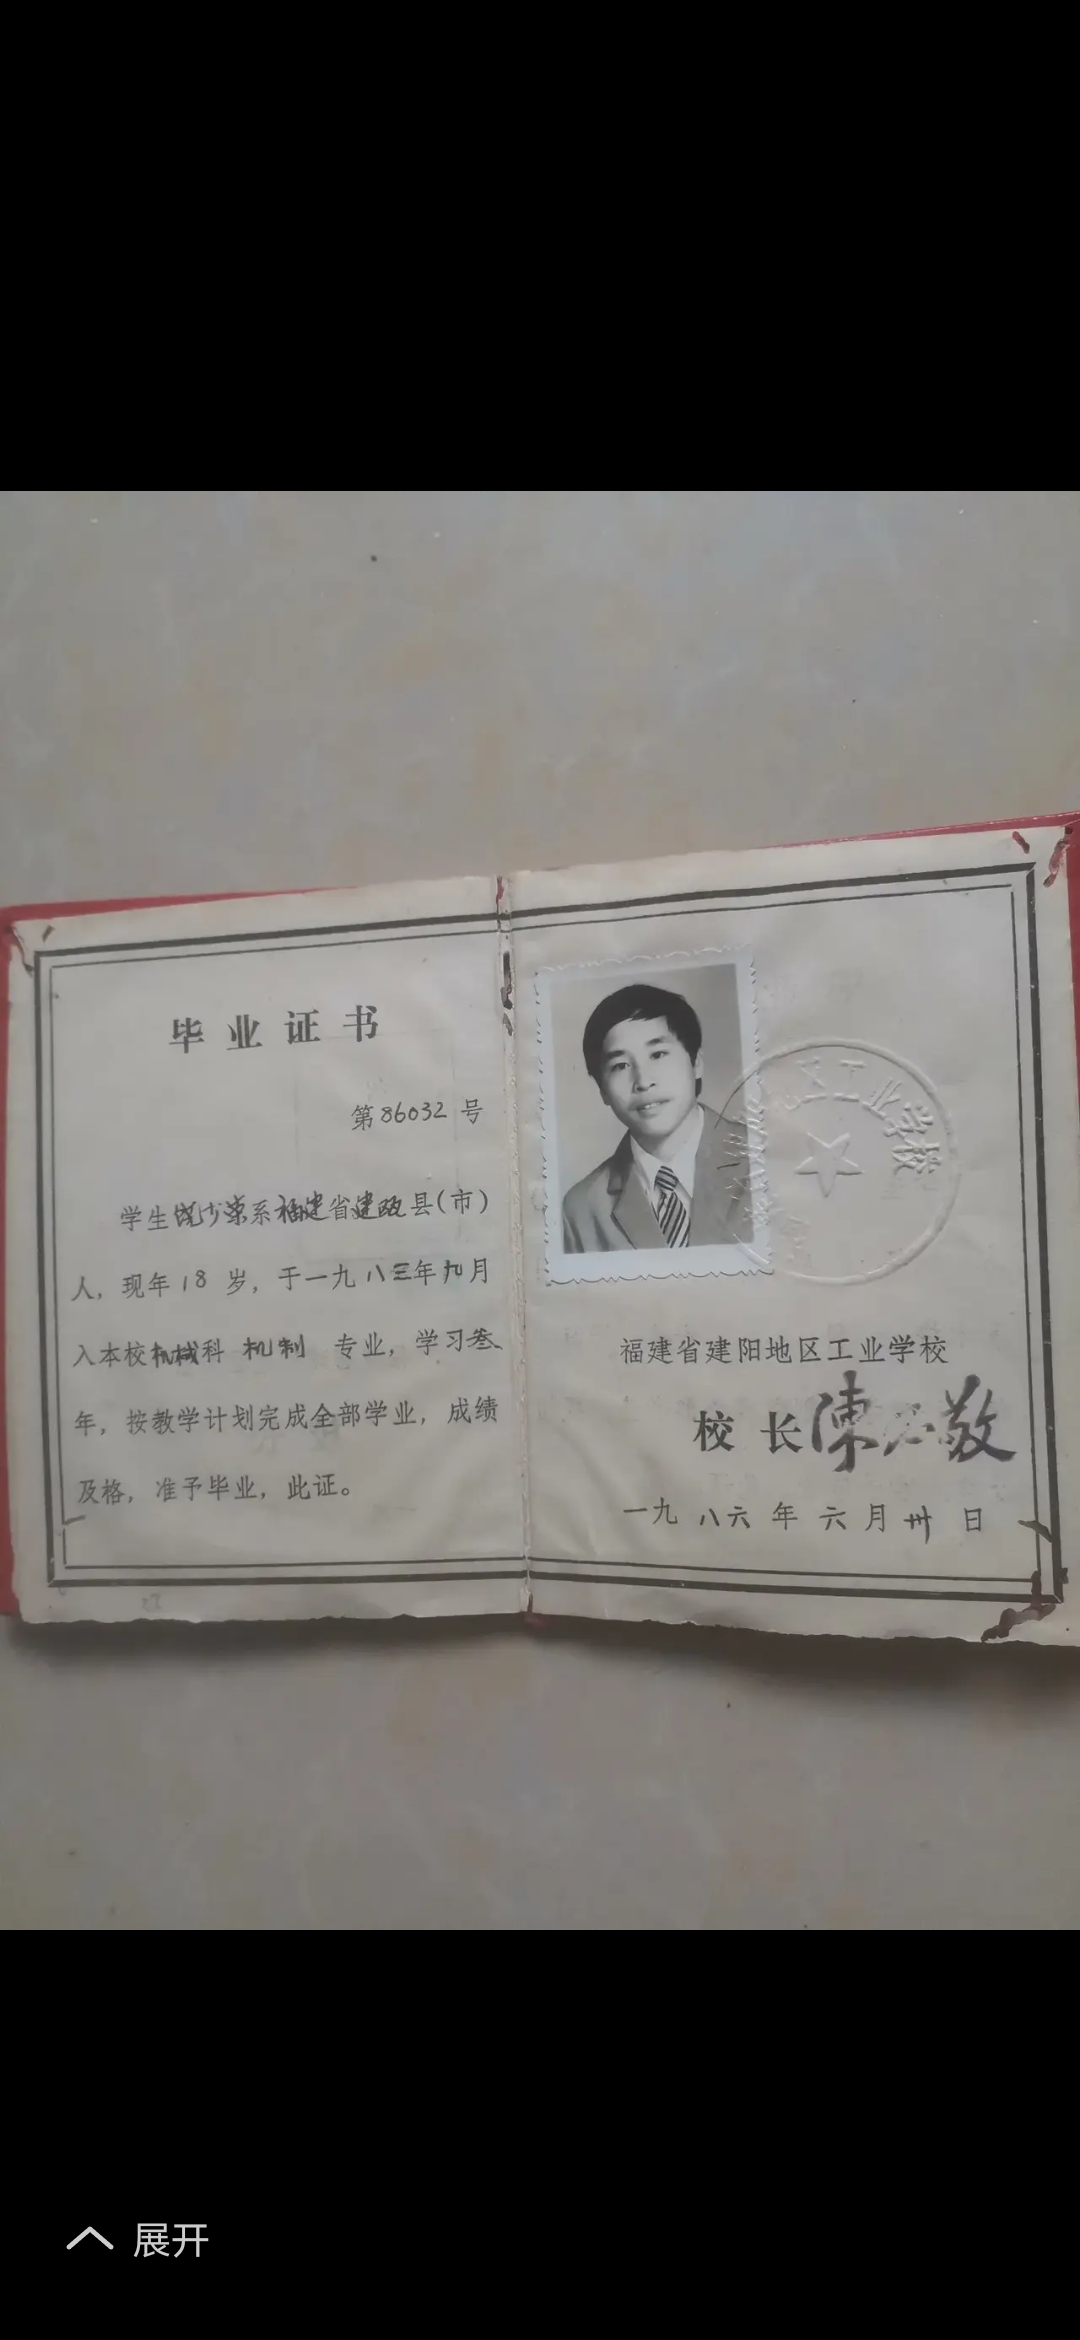 毕业证书
第86032号
学生 少 系福建省建瓯县(市)
人，现年18岁，于一九八三年九月
入本校机械科 机制 专业，学习叁
年，按教学计划完成全部学业，成绩
及格，准予毕业，此证。
区工业学校
福建省建阳地区工业学校
校长陳 敬
一九八六年六月卅日
展开